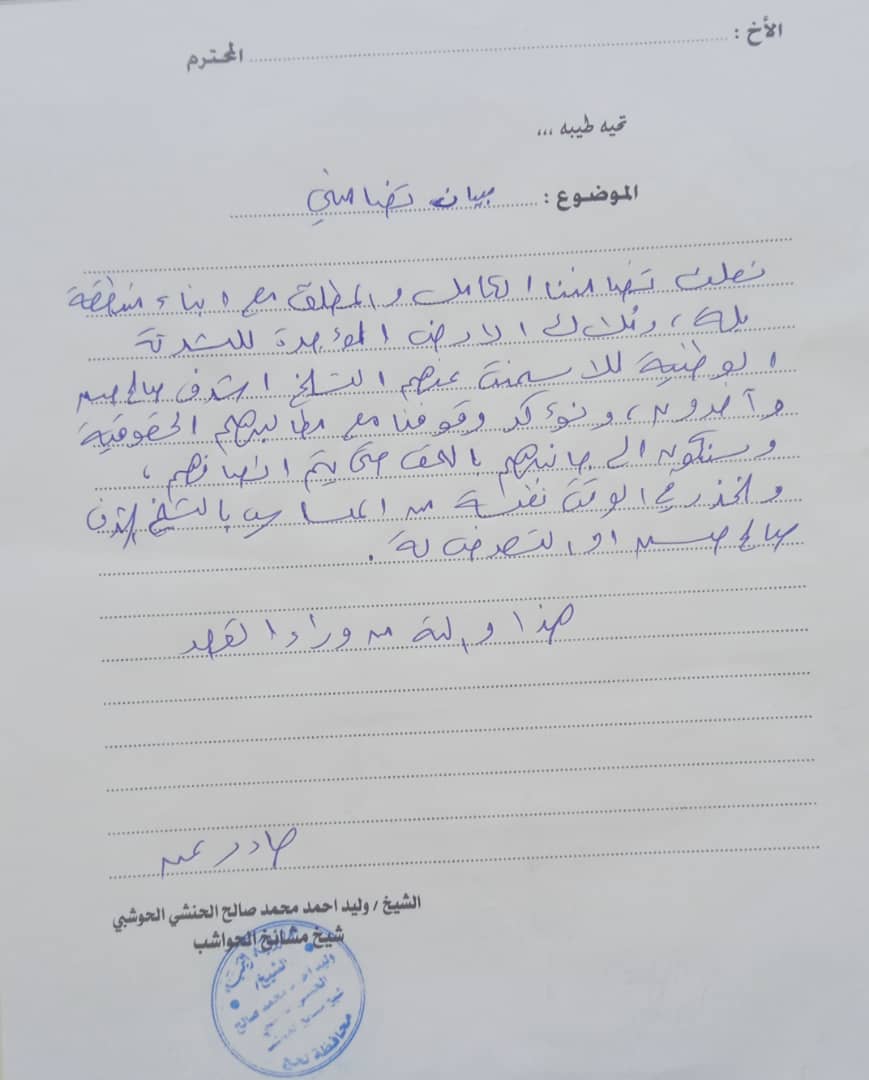 الأخ : ............ المحترم
تحيه طيبه ...
الموضوع : بيان تضامني
نعلن تضامننا الكامل والمطلق مع ابناء منطقة
بله ، وملاك الارض المؤجرة للشركة
الوطنية للاسمنت عنهم الشيخ اشرف صالح حسين
وآخرون ، ونؤكد وقوفنا مع مطالبهم الحقوقية
وسنكون الى جانبهم بالحق حتى يتم انصافهم ،
ونحذر في الوقت نفسة من المساس بالشيخ اشرف
صالح حسين او التعرض لة .
هذا والله من وراء القصد
صادر عن
الشيخ / وليد احمد محمد صالح الحنشي الحوشبي
شيخ مشائخ الحواشب
الشيخ/
وليد احمد محمد صالح
محافظة لحج